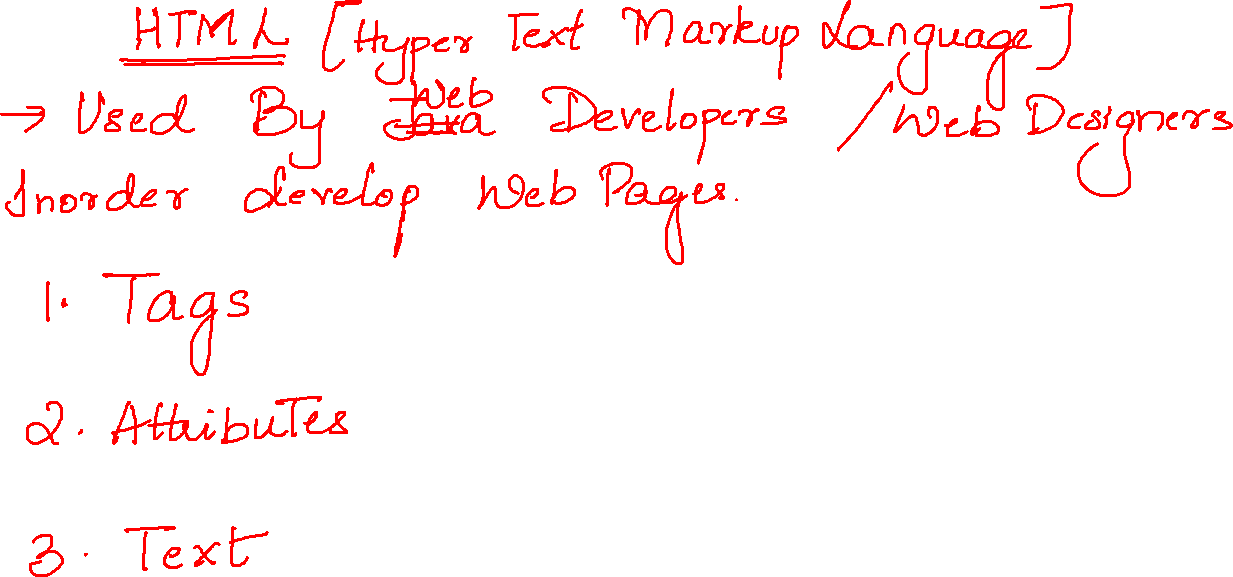 HTML [Hyper Text Markup Language]
→ Used By Web Developers / Web Designers
Inorder develop Web Pages.
1. Tags
2. Attributes
3. Text